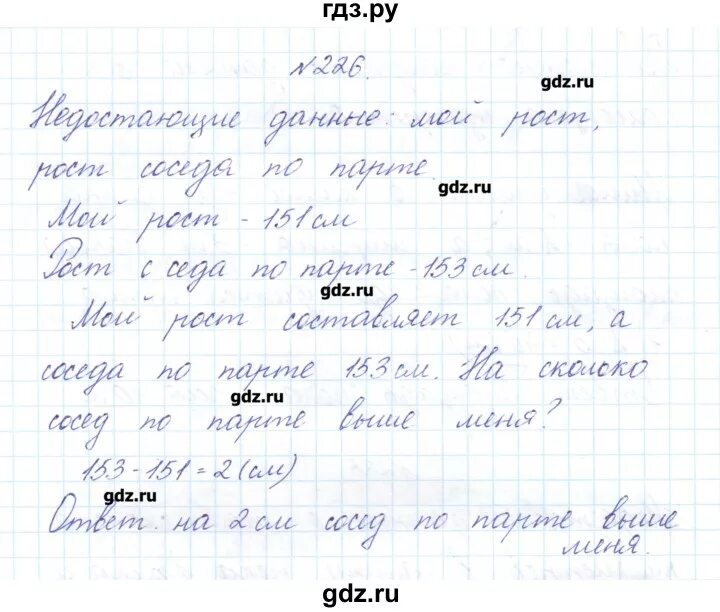 гдз.ру
№226.
gdz.ru
Недостающие данные: мой рост,
рост соседа по парте.
gdz.ru
Мой рост - 151 см
Рост с седа по парте - 153 см.
gdz.ru
Мой рост составляет 151 см, а
соседа по парте 153 см. На сколоко
gdz.ru
сосед по парте выше меня?
153 - 151 = 2 (см)
gdz.ru
Ответ: на 2 см сосед по парте выше
меня.
gdz.ru